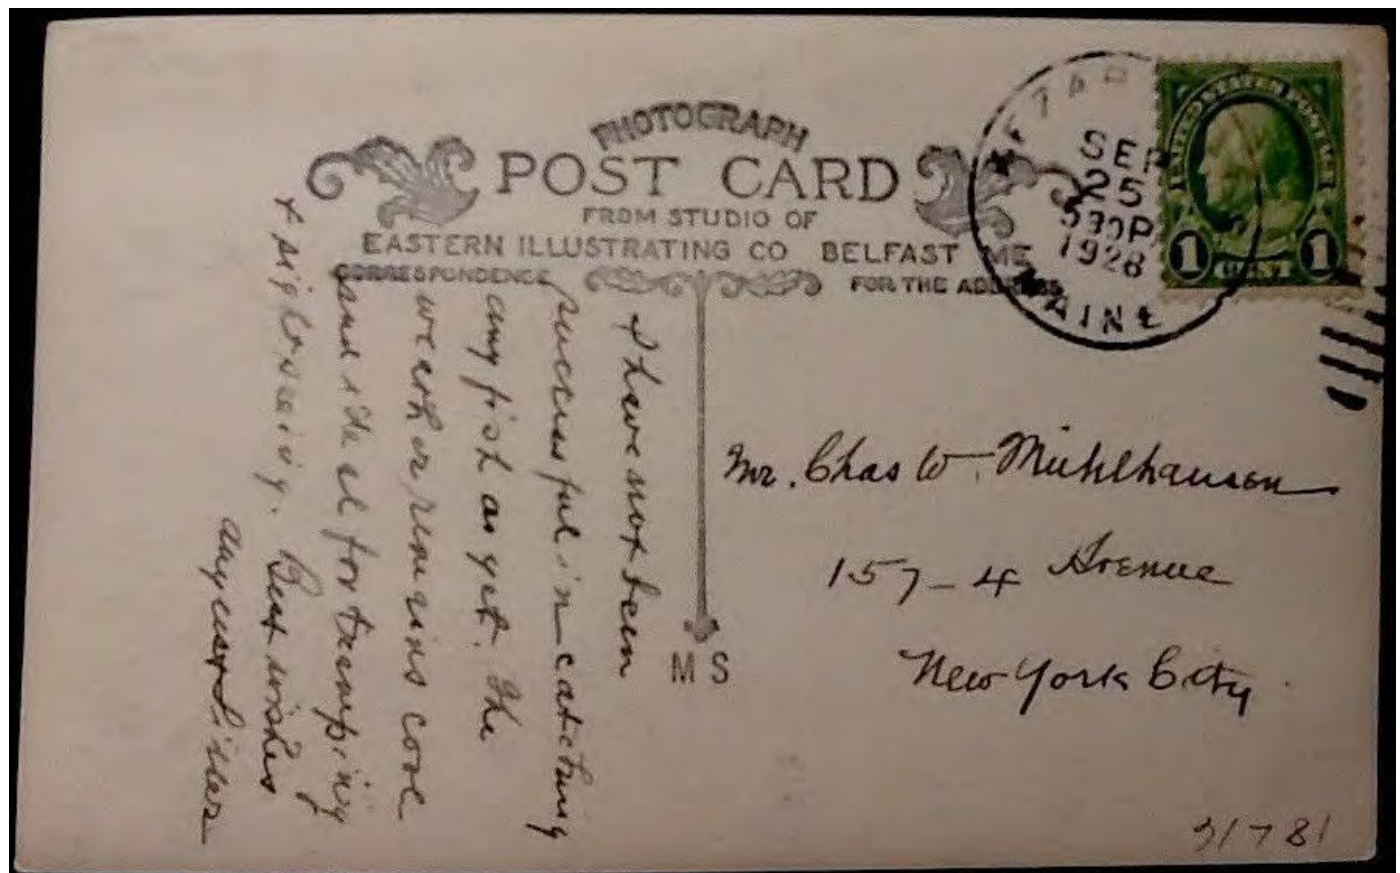 PHOTOGRAPH
POST CARD
FROM STUDIO OF
EASTERN ILLUSTRATING CO BELFAST ME
CORRESPONDENCE
FOR THE ADDRESS
SEP
25
530P
1928
MAINE
UNITED STATES POSTAGE
1 CENT 1
I have not been
successful in catching
any fish as yet. The
weather remains cool
and ideal for tramping
& sightseeing. Best wishes
Mr. Chas W. Mühlhausen
157-4 Avenue
New York City
M S
31781